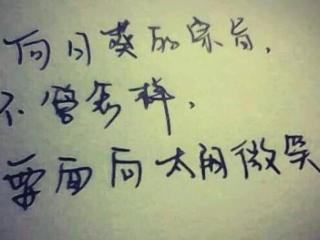 向日葵的宗旨，
不管怎样，
要面向太阳微笑